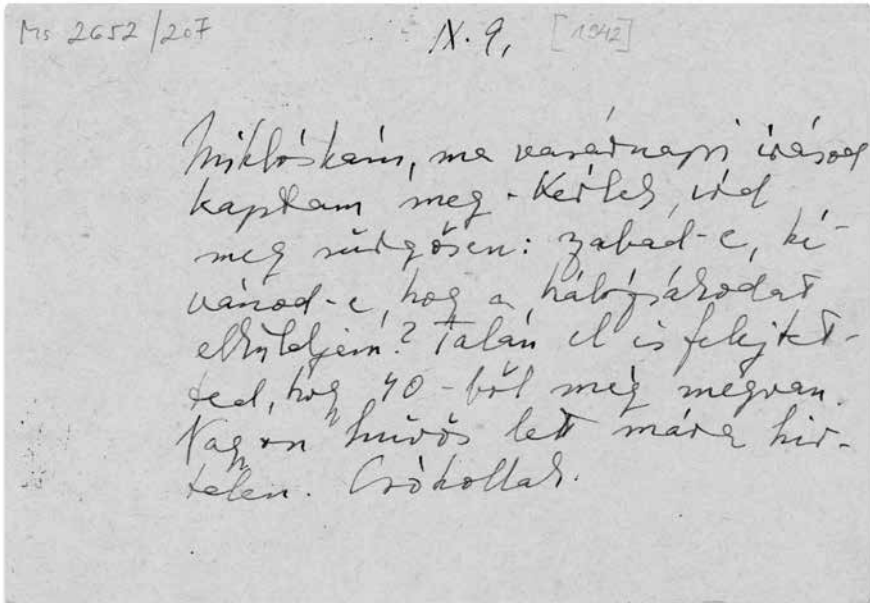 Ms 2652/207 IX. 9, [1942]
Miklóskám, ma vasárnapi irásod
kaptam meg - Kérlek, ird
meg sürgősen: zabad-e, ki-
vánod-e, hog a hálózsákodat
elküldjem? Talán el is felejtet-
ted, hog 40-ből még megvan.
Nagyon hüvös lett mára hir-
telen. Csókollak.